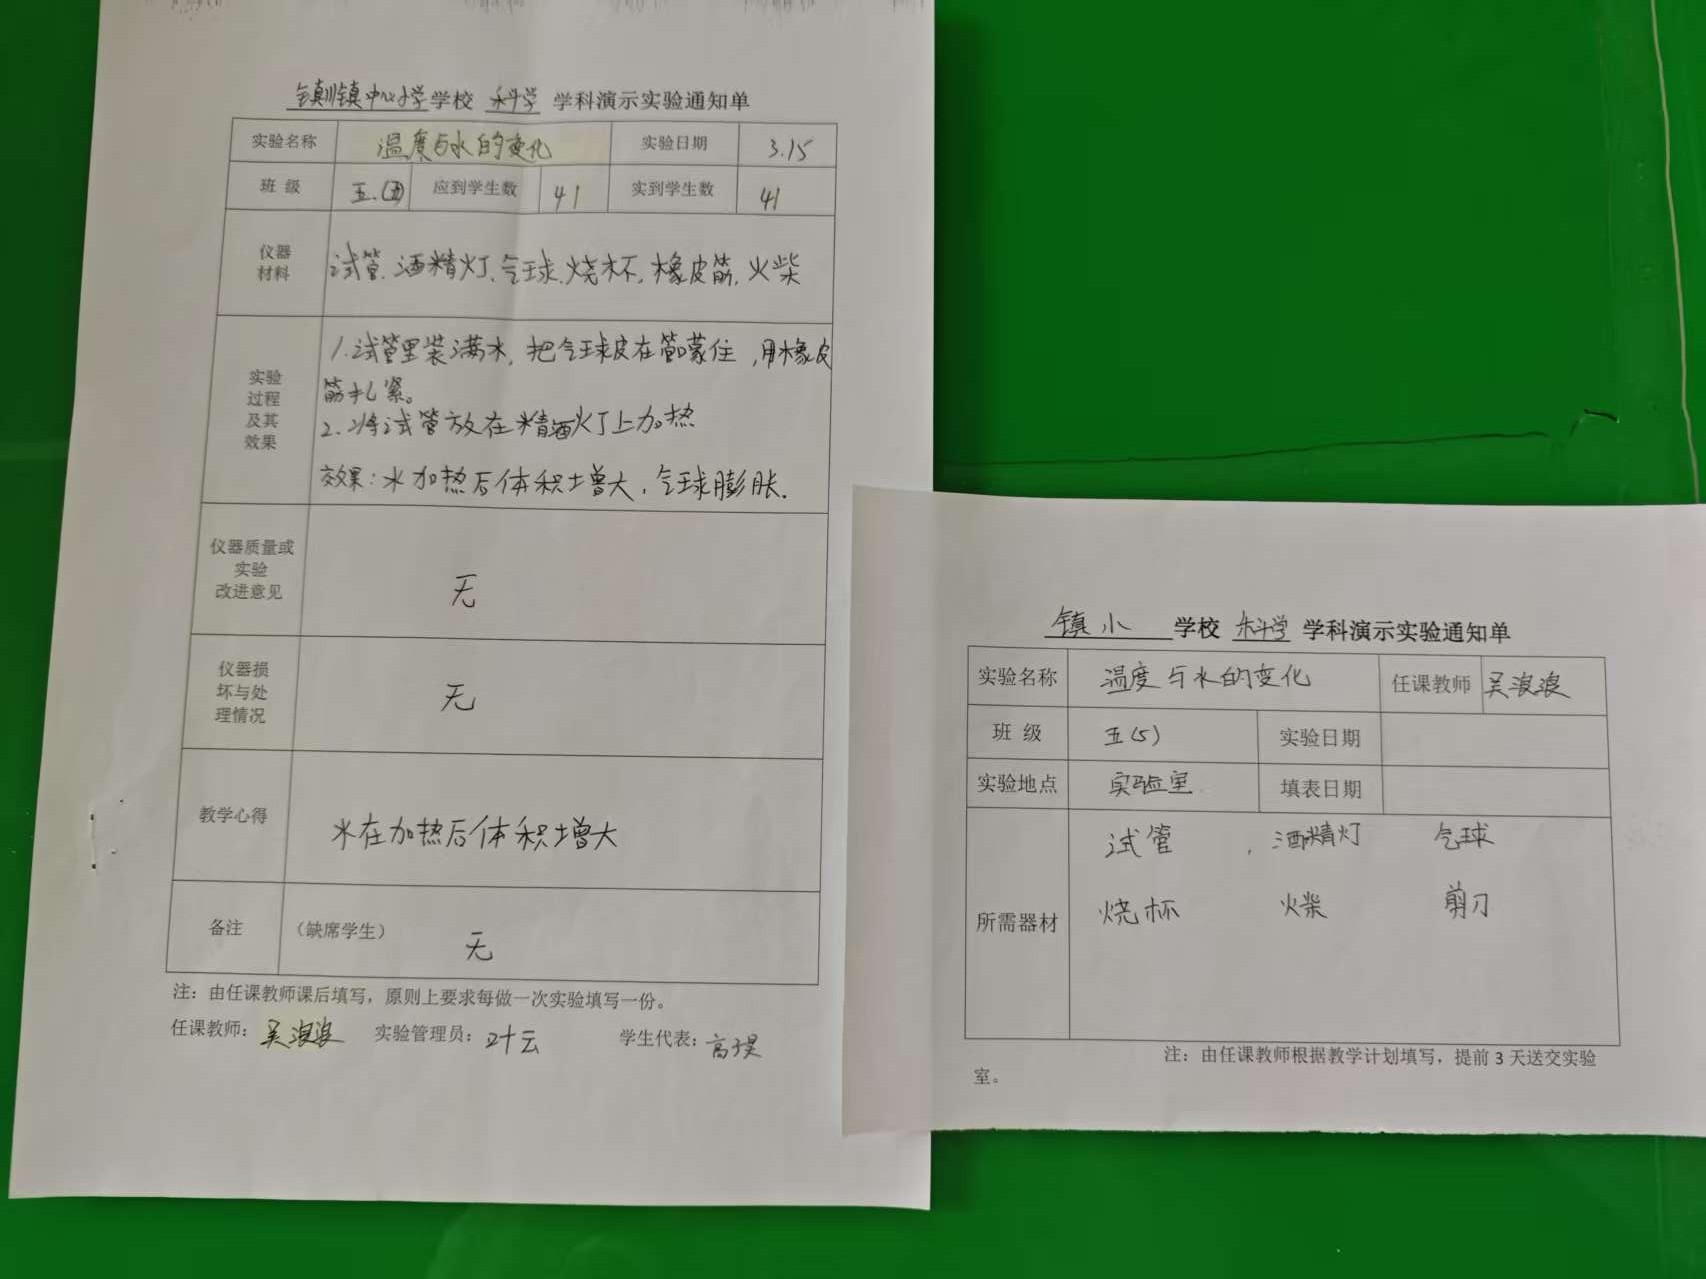 镇川镇中心小学学校 科学 学科演示实验通知单
实验名称 温度与水的变化 实验日期 3.15
班 级 五.(五) 应到学生数 41 实到学生数 41
仪器
材料
试管.酒精灯.气球.烧杯.橡皮筋.火柴
实验
过程
及其
效果
1.试管里装满水,把气球皮在管口蒙住,用橡皮
筋扎紧。
2.将试管放在精酒灯上加热
效果:水加热后体积增大,气球膨胀.
仪器质量或
实验
改进意见
无
仪器损
坏与处
理情况
无
教学心得
水在加热后体积增大
备注 (缺席学生) 无
注:由任课教师课后填写,原则上要求每做一次实验填写一份。
任课教师:吴浪浪 实验管理员:叶云 学生代表:高子昊
镇小 学校 科学 学科演示实验通知单
实验名称 温度与水的变化 任课教师 吴浪浪
班 级 五(5) 实验日期
实验地点 实验室 填表日期
所需器材
试管 , 酒精灯 气球
烧杯 火柴 剪刀
注:由任课教师根据教学计划填写,提前3天送交实验
室。